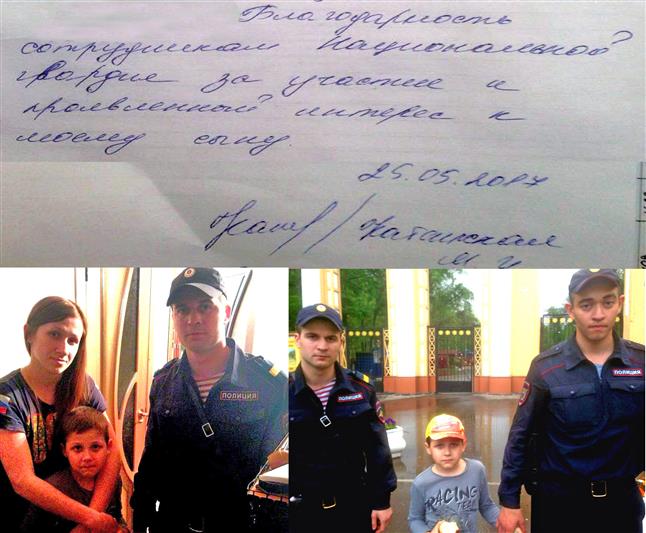 Благодарность
сотрудникам Национальной
гвардии за участие и
проявленный интерес к
моему сыну.
25.05.2017
ПОЛИЦИЯ
ПОЛИЦИЯ
ПОЛИЦИЯ
RACING